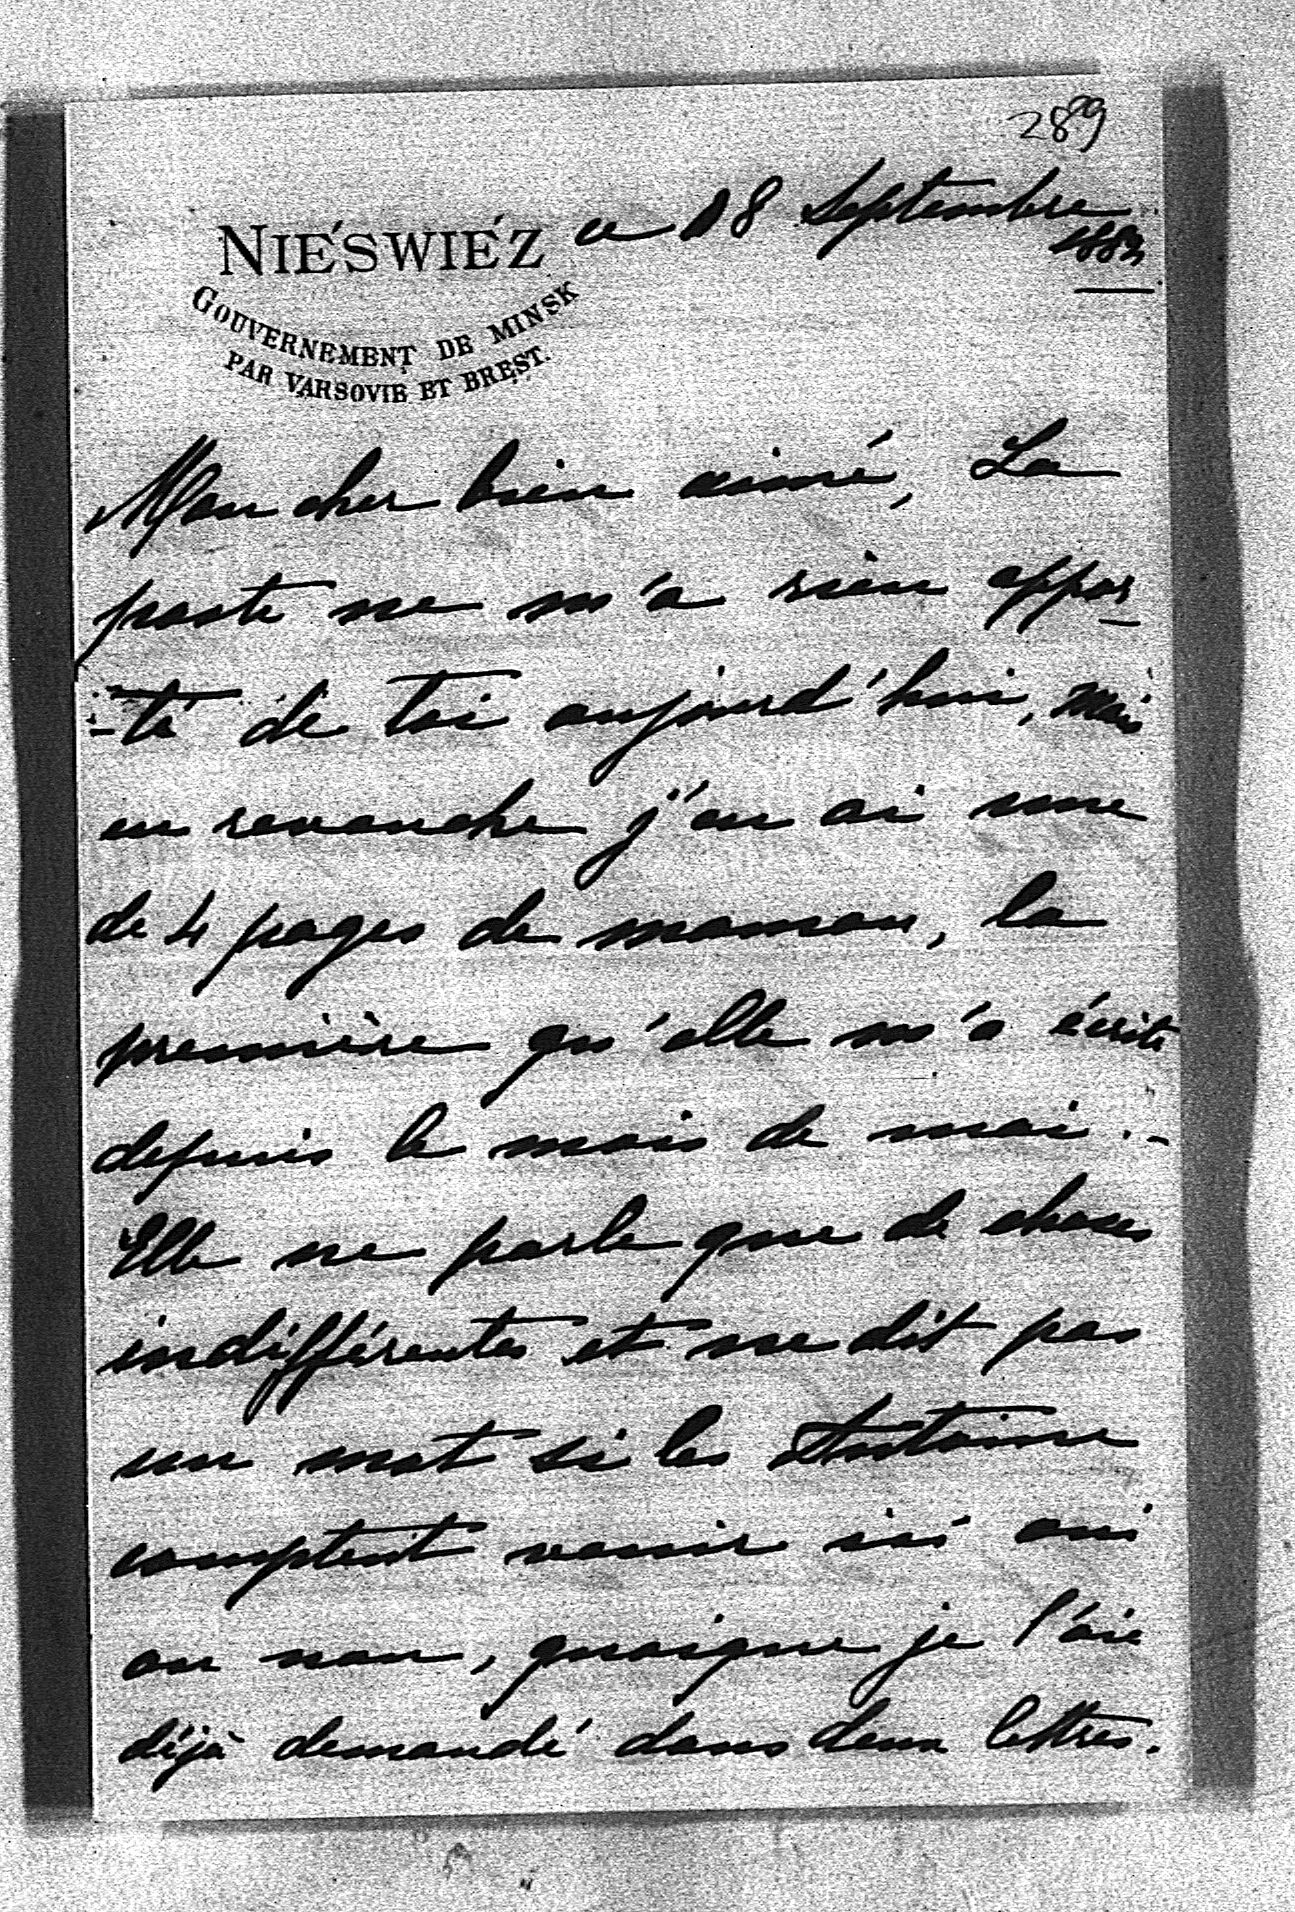 289
NIÉSWIÉZ ce 18 Septembre
1883
GOUVERNEMENT DE MINSK
PAR VARSOVIE ET BREST.
Mon cher bien aimé, La
poste ne m'a rien appor
-té de toi aujourd'hui, mais
en revanche j'en ai une
de 4 pages de maman, la
première qu'elle m'a écrite
depuis le mois de mai. -
Elle ne parle que de choses
indifférentes et ne dit pas
un mot si les Antoine
comptent venir ici oui
ou non, quoique je l'aie
déjà demandé dans deux lettres.